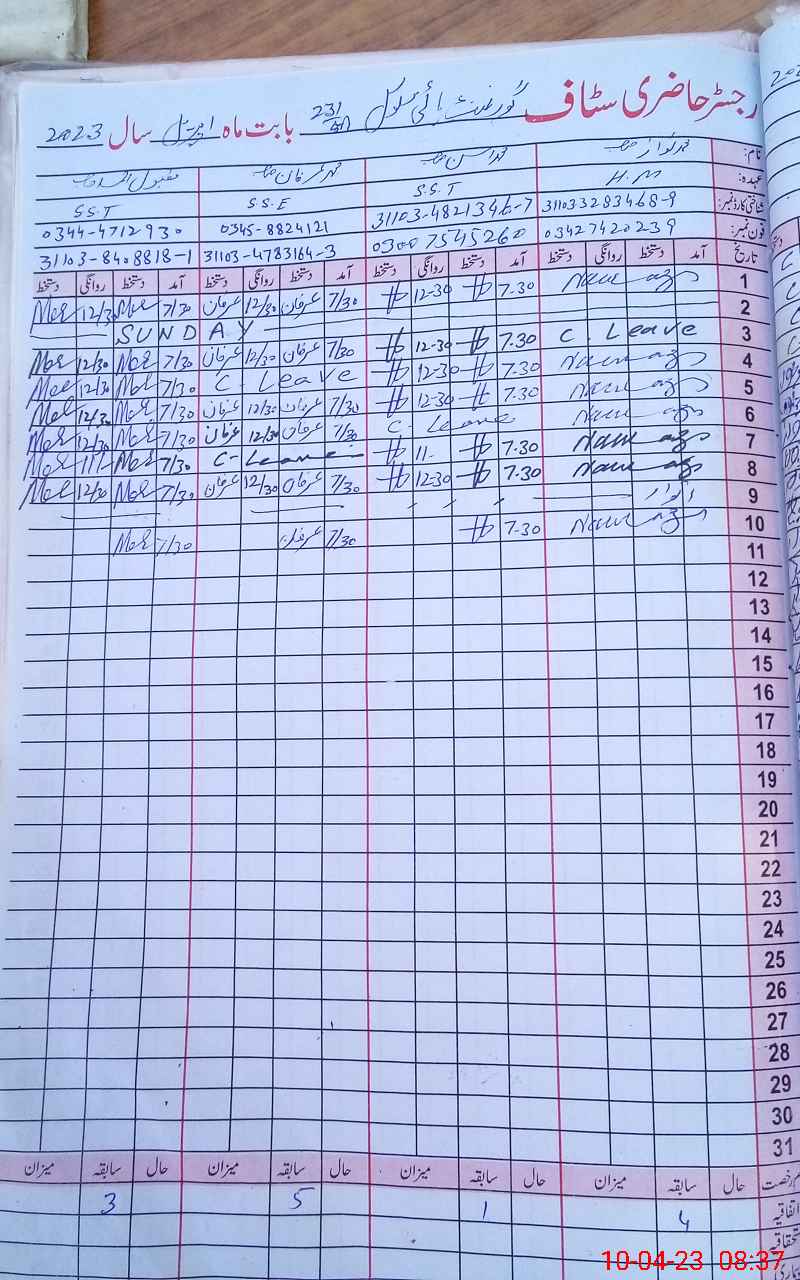 رجسٹر حاضری سٹاف گورنمنٹ ہائی سکول 231 بابت ماہ اپریل سال 2023
نام: محمد نواز محمد احسن محمد عرفان
عہدہ: H.M S.S.T S.S.E S.S.T
شناختی کارڈ نمبر: 31103-3283468-9 31103-4821346-7 0345-8824121 0344-4712930
فون نمبر: 03427420239 03007545260 31103-4783164-3 31103-8408818-1
تاریخ آمد دستخط روانگی دستخط آمد دستخط روانگی دستخط آمد دستخط روانگی دستخط آمد دستخط روانگی دستخط
1 7-30 12-30 7/30 عرفان 12/30 عرفان 7/30 12/30
2 SUNDAY
3 C. Leave 7.30 12-30 7/30 عرفان 12/30 عرفان 7/30 12/30
4 7.30 12-30 C. Leave 7/30 12/30
5 7.30 12-30 7/30 عرفان 12/30 عرفان 7/30 12/30
6 C Leave 7/30 عرفان 12/30 عرفان 7/30 12/30
7 7.30 11- C-Leave 7/30
8 7.30 12-30 7/30 عرفان 12/30 عرفان 7/30 12/30
9 اتوار
10 7-30 7/30 عرفان 7/30
11
12
13
14
15
16
17
18
19
20
21
22
23
24
25
26
27
28
29
30
31
رخصت حال سابقہ میزان حال سابقہ میزان حال سابقہ میزان حال سابقہ میزان
اتفاقیہ 4 1 5 3
10-04-23 08:37